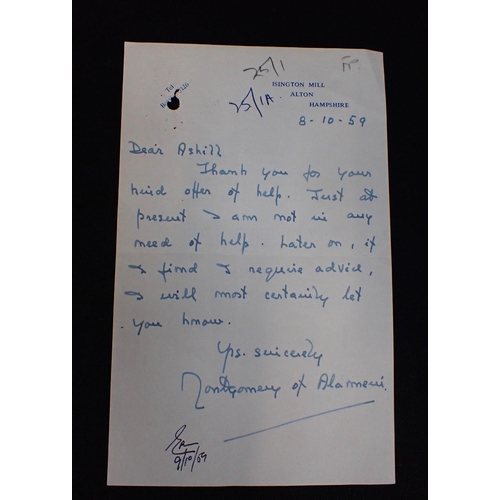 25/1
ISINGTON MILL
ALTON
HAMPSHIRE
Tel
25/1A
8-10-59
Dear Ashill
Thank you for your
kind offer of help. Just at
present I am not in any
need of help. Later on, if
I find I require advice,
I will most certainly let
you know.
Yrs. sincerely
Montgomery of Alamein
9/10/59